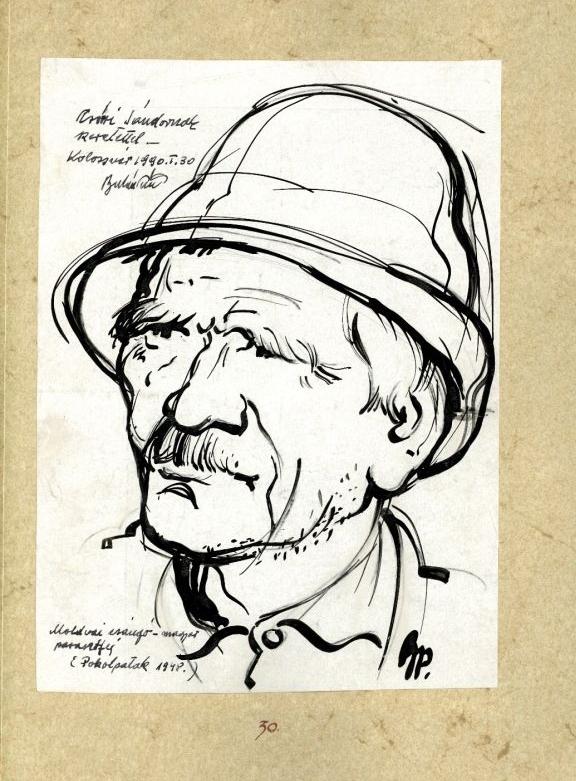 Sándornak
szeretettel –
Kolozsvár 1990.I.30
Moldvai csángó-magyar
parasztfej
(Pokolpatak 1948.)
BP.
30.